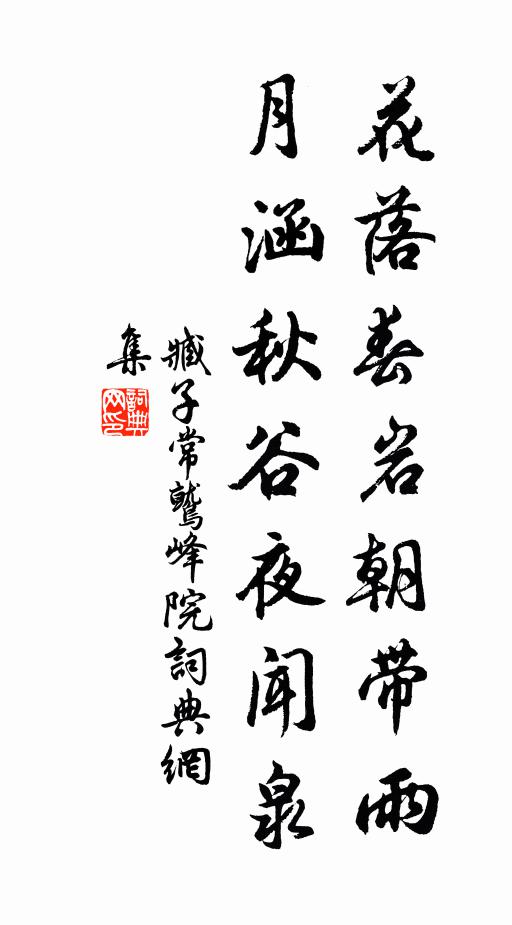 花落春岩朝带雨
月涵秋谷夜闻泉
臧子常鹫峰院詞典網
集
詞典
网印